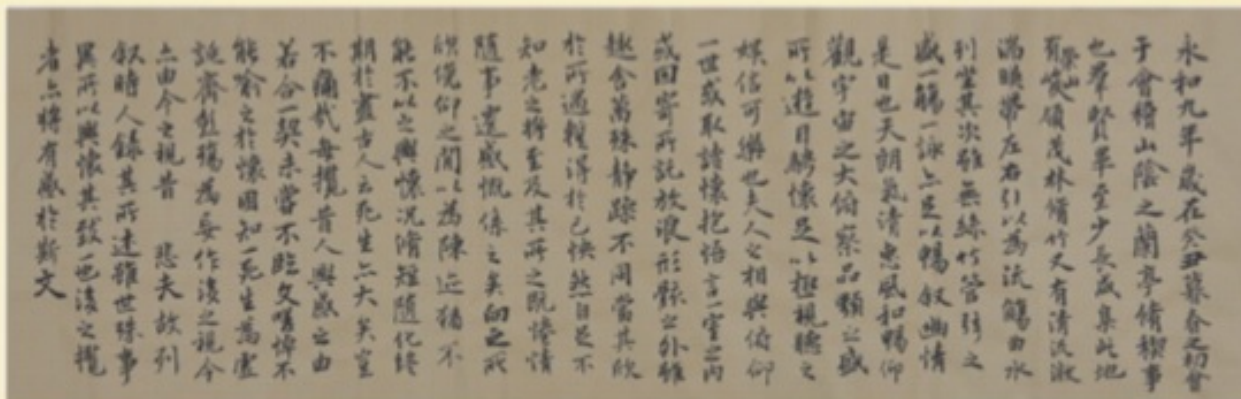 永和九年歲在癸丑暮春之初會
于會稽山陰之蘭亭脩禊事
也羣賢畢至少長咸集此地
有崇山峻領茂林脩竹又有清流激
湍暎帶左右引以為流觴曲水
列坐其次雖無絲竹管弦之
盛一觴一詠亦足以暢叙幽情
是日也天朗氣清惠風和暢仰
觀宇宙之大俯察品類之盛
所以遊目騁懷足以極視聽之
娛信可樂也夫人之相與俯仰
一世或取諸懷抱悟言一室之內
或因寄所託放浪形骸之外雖
趣舍萬殊静躁不同當其欣
於所遇蹔得於己怏然自足不
知老之將至及其所之既惓情
隨事遷感慨係之矣向之所
欣俛仰之閒以為陳迹猶不
能不以之興懷況脩短隨化終
期於盡古人云死生亦大矣豈
不痛哉每攬昔人興感之由
若合一契未嘗不臨文嗟悼不
能喻之於懷固知一死生為虛
誕齊彭殤為妄作後之視今
亦由今之視昔 悲夫故列
叙時人錄其所述雖世殊事
異所以興懷其致一也後之攬
者亦將有感於斯文